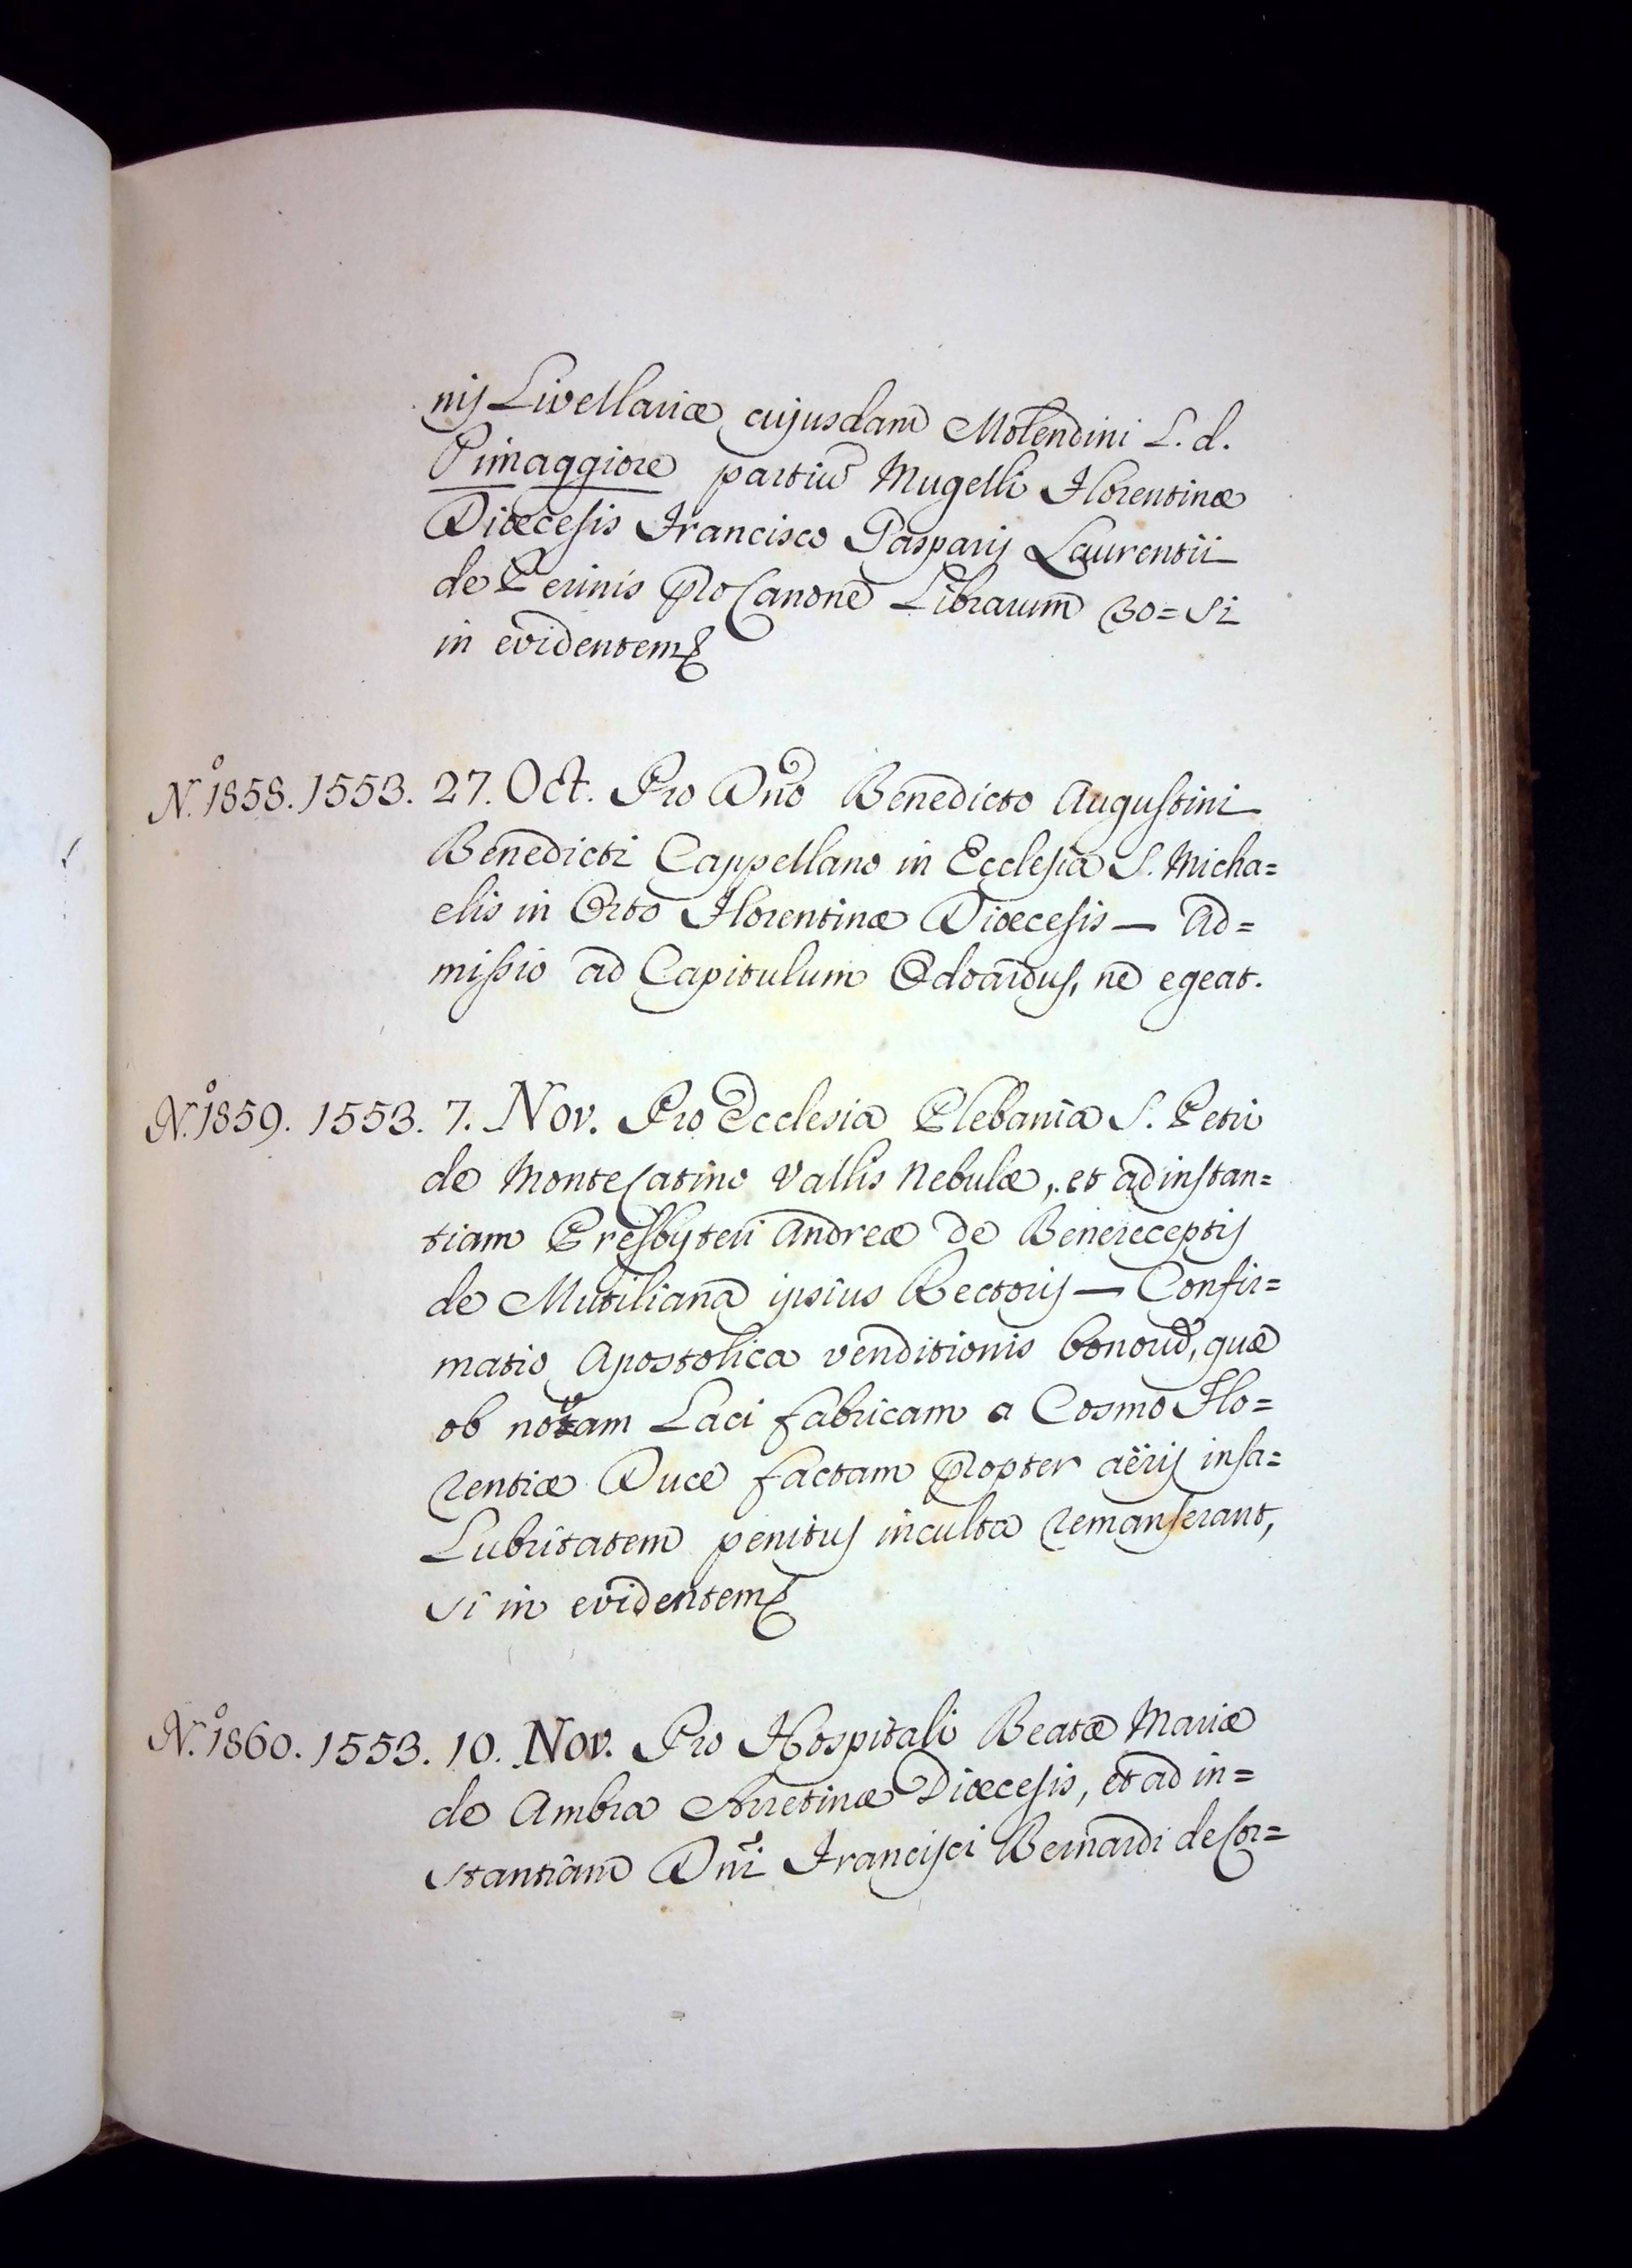 nis Livellariæ cujusdam Molendini L. d.
Pimaggiore partiũ Mugelli Florentinæ
Diœcesis Francisco Gasparis Laurentii
de Perinis pro Canone Librarum 30 = Si
in evidentem
N.º 1858. 1553. 27. Oct. Pro Dño Benedicto Augustini
Benedicti Cappellano in Ecclesia S. Micha=
elis in Orto Florentinæ Diœcesis — Ad=
missio ad Capitulum Odoardus, ne egeat.
N.º 1859. 1553. 7. Nov. Pro Ecclesia Plebania S. Petri
de Monte Catino Vallis Nebulæ, et ad instan=
tiam Presbyteri Andreæ de Benereceptis
de Mutiliana ipsius Rectoris — Confir=
matio Apostolica venditionis bonorũ, quæ
ob novam Laci fabricam a Cosmo Flo=
rentiæ Duce factam propter aëris insa=
lubritatem penitus inculta remanserant,
si in evidentem
N.º 1860. 1553. 10. Nov. Pro Hospitali Beatæ Mariæ
de Ambra Arretinæ Diœcesis, et ad in=
stantiam Dñi Francisci Bernardi de Cor=